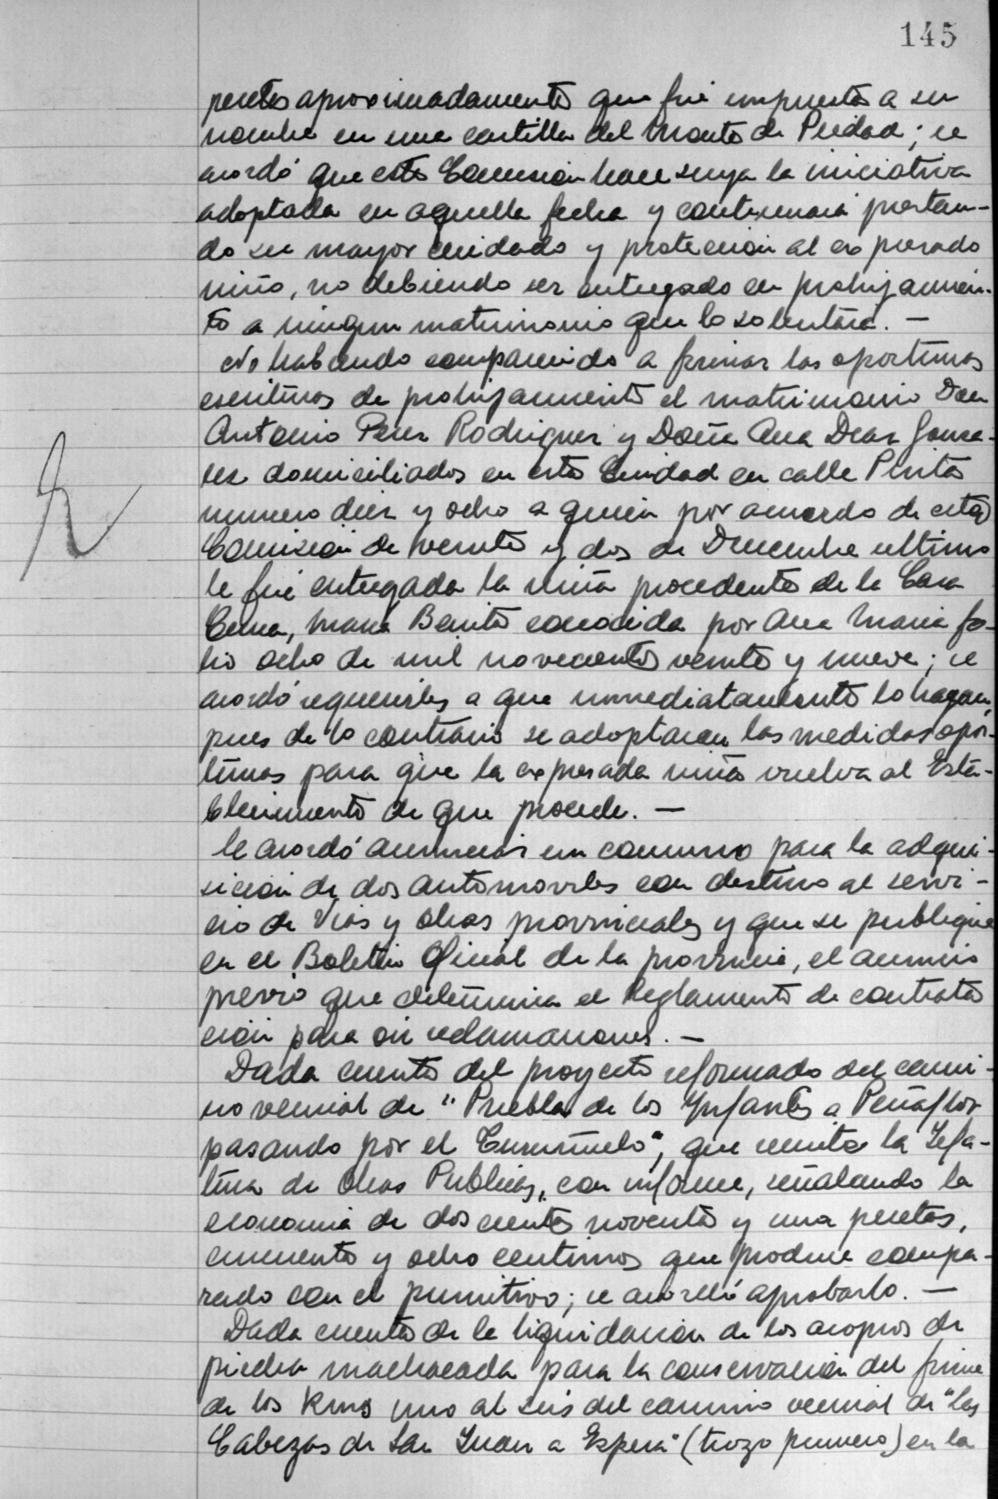 145
pesetas aproximadamente que fué impuesta a su
nombre en una cartilla del Monte de Piedad; se
acordó que esta Comision hace suya la iniciativa
adoptada en aquella fecha y continuará prestan-
do su mayor cuidado y protección al expresado
niño, no debiendo ser entregado en prohijamien-
to a ningun matrimonio que lo solicitara. —
No habiendo comparecido a firmar las oportunas
escrituras de prohijamiento el matrimonio Don
Antonio Perez Rodriguez y Doña Ana Diaz Gonza-
lez domiciliados en esta Ciudad en calle
numero diez y ocho a quien por acuerdo de esta
Comision de veinte y dos de Diciembre ultimo
le fué entregada la niña procedente de la Casa
Cuna, Maria Benito conocida por Ana Maria fo-
lio ocho de mil novecientos veinte y nueve; se
acordó requerirles a que inmediatamente lo hagan,
pues de lo contrario se adoptaran las medidas opor-
tunas para que la expresada niña vuelva al Esta-
blecimiento de que procede. —
Se acordó anunciar un concurso para la adqui-
sicion de dos automoviles con destino al servi-
cio de Vias y Obras provinciales y que se publique
en el Boletin Oficial de la provincia, el anuncio
previo que determina el Reglamento de contrata
ción para oir reclamaciones. —
Dada cuenta del proyecto reformado del cami-
no vecinal de "Puebla de los Infantes a Peñaflor
pasando por el ", que remite la Jefa-
tura de Obras Publicas, con informe, señalando la
economia de doscientas noventa y una pesetas,
cincuenta y ocho centimos que produce compa-
rado con el primitivo; se acordó aprobarlo. —
Dada cuenta de la liquidacion de los acopios de
piedra machacada para la conservacion del firme
de los Kms uno al seis del camino vecinal de "Las
Cabezas de San Juan a Espera" (trozo primero) en la